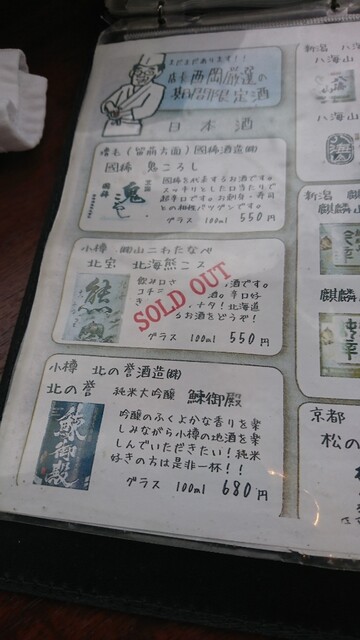 まだまだあります!!
店長西岡厳選の
期間限定酒
日本酒
増毛(留萌方面)國稀酒造㈱
國稀 鬼ころし
國稀を代表するお酒です。
スッキリとした口当たりで
超辛口です。お刺身・寿司
との相性バツグンです。
グラス 100ml 550円
小樽 ㈱山二わたなべ
北宝 北海熊ころ
飲み口さ
酒です。
コチ
酒。辛口好
き
ナタ!北海道
るお酒をどうぞ!
SOLD OUT
グラス 100ml 550円
小樽 北の誉酒造㈱
北の誉 純米大吟醸 鰊御殿
吟醸のふくよかな香りを楽
しみながら小樽の地酒を楽
しんでいただきたい!純米
好きの方は是非一杯!!
グラス 100ml 680円
鰊御殿
新潟 八海山
八海山
八海
新潟 麒麟山
麒麟山
麒麟
京都
松の